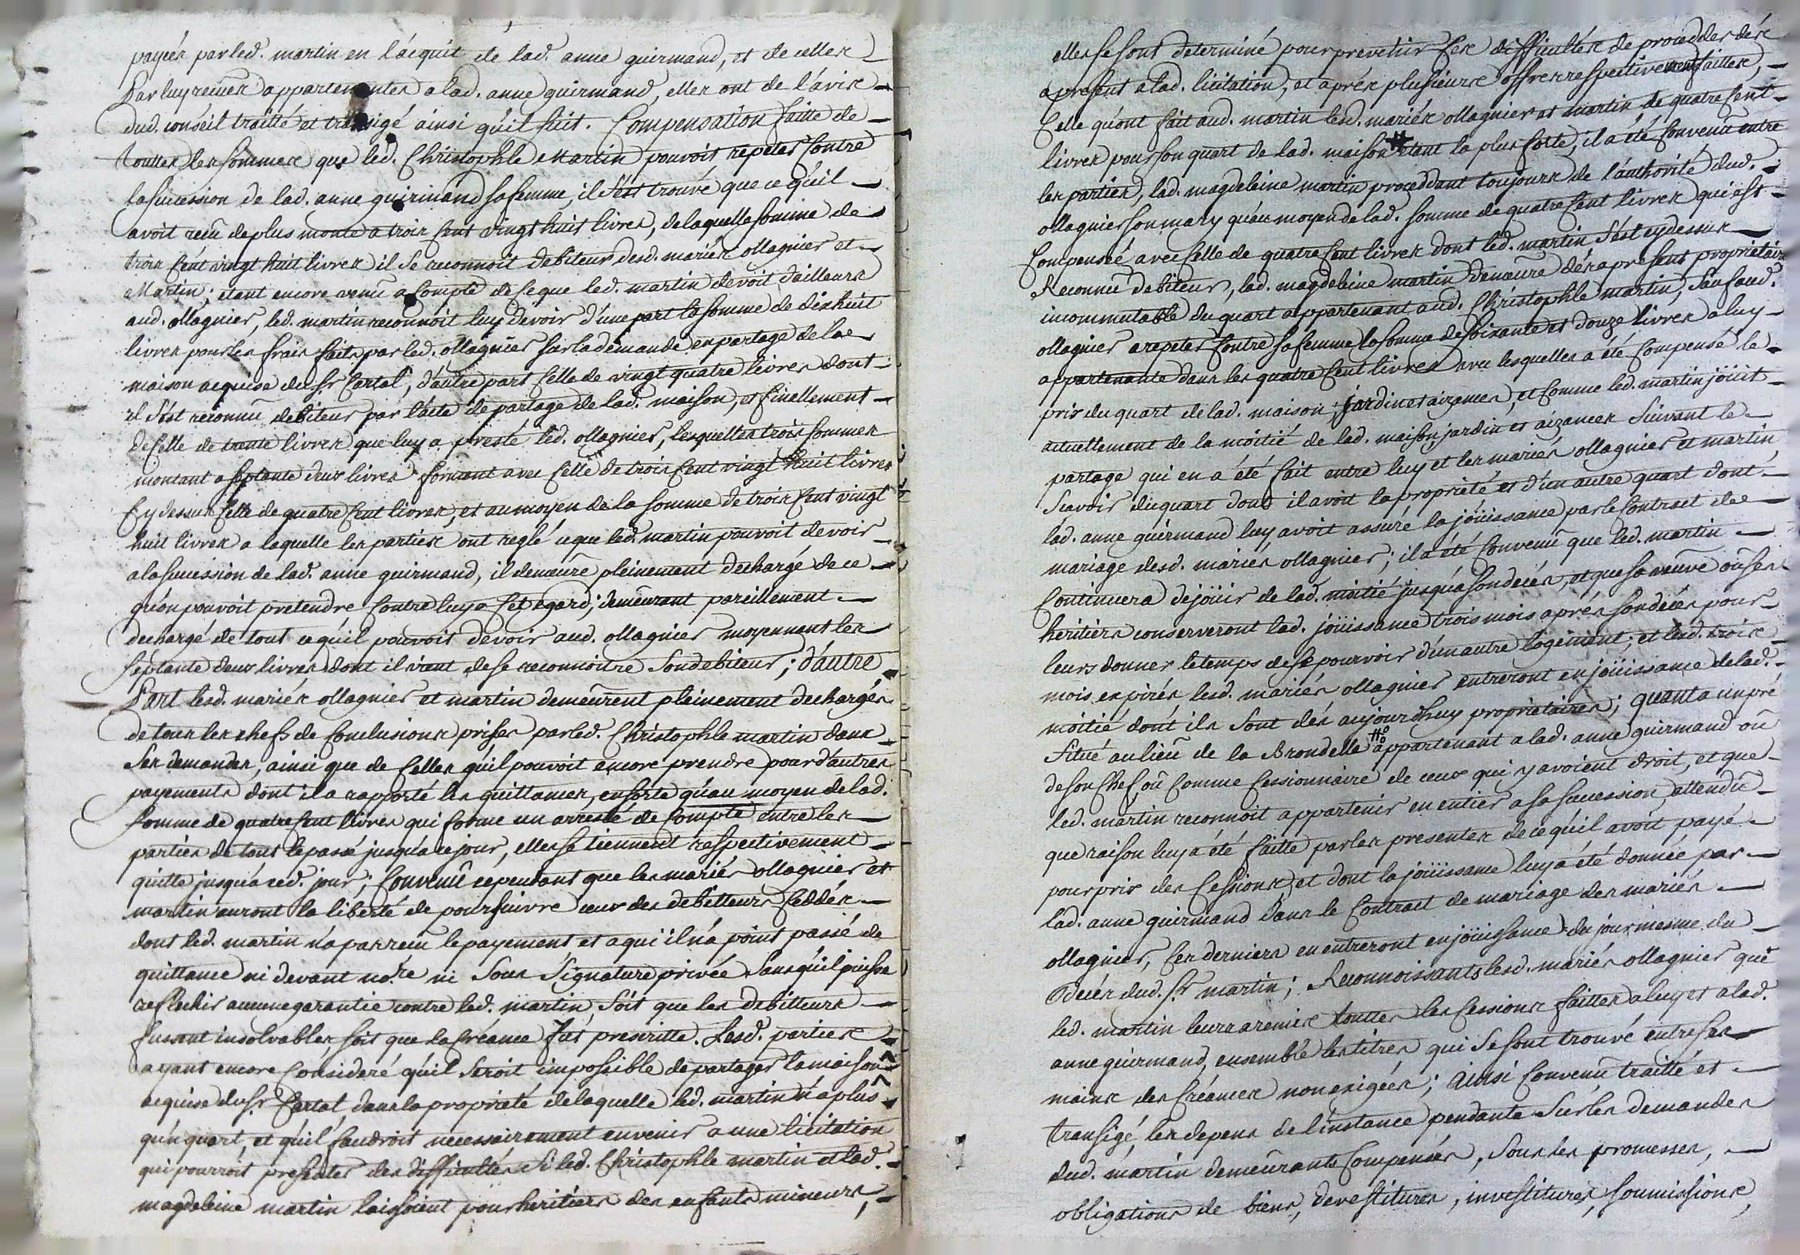 payées par led. martin en l'acquit de lad. anne guirmand, et de celles
Par luy reçues appartenantes a lad. anne guirmand, elles ont de l'avis
dud. conseil traitté et transigé ainsi qu'il suit. Compensation faitte de
touttes les sommes que led. Christophle Martin pouvoit repeter Contre
la succession de lad. anne guirmand sa femme, il s'est trouvé que ce qu'il
avoit reçu de plus monte a trois Cent vingt huit livres, de laquelle somme de
trois Cent vingt huit livres il Se reconnoit debiteur desd. mariés ollagnier et
Martin; etant encore venu a Compte de Ce que led. martin devoit d'ailleurs
aud. ollagnier, led. martin reconnoit luy devoir d'une part la somme de dix huit
livres pour les frais faits par led. ollagnier sur la demande en partage de la
maison acquise du Sr. Certal, d'autre part Celle de vingt quatre livres dont
il s'est reconnu debiteur par l'acte de partage de lad. maison, et finallement
de Celle de trente livres que luy a presté led. ollagnier, lesquelles trois sommes
montant a septante deux livres forment avec Celle de trois Cent vingt huit livres
Cy dessus Celle de quatre Cent livres, et au moyen de la somme de trois Cent vingt
huit livres a laquelle les parties ont reglé ce que led. martin pouvoit devoir
a la succession de lad. anne guirmand, il demeure pleinement dechargé de ce
qu'on pouvoit pretendre Contre luy a Cet egard; demeurant pareillement
dechargé de tout ce qu'il pouvoit devoir aud. ollagnier moyennant les
septante deux livres dont il vient de se reconnoitre Son debiteur; d'autre
Part lesd. mariés ollagnier et martin demeurent pleinement dechargés
de tous les chefs de Conclusions prises par led. Christophle martin dans
Ses demandes, ainsi que de Celles qu'il pouvoit encore prendre pour d'autres
payements dont il a rapporté les quittances, en sorte qu'au moyen de lad.
Somme de quatre Cent livres qui forme un arresté de Compte entre les
parties de tout le passé jusqu'a ce jour, elles se tiennent respectivement
quitte jusqu'a ced. jour; Convenu cependant que les mariés ollagnier et
martin auront la liberté de poursuivre ceux des debitteurs Cedés
dont led. martin n'a pas reçu le payement et a qui il n'a point passé de
quittance ni devant nore. ni Sous Signature privée Sans qu'il puisse
reflechir aucune garantie contre led. martin Soit que les debitteurs
fussent insolvables soit que la Créance fut prescritte. Lesd. parties
ayant encore Consideré qu'il Seroit impossible de partager la maison
acquise du Sr. Certal, dans la proprieté de laquelle led. martin n'a plus
qu'un quart, et qu'il faudroit necessairement en venir a une licitation
qui pourroit presenter des difficultés Si led. Christophle martin et lad.
magdeleine martin laissoient pour heritiers des enfants mineurs,
elles se sont determiné pour prevenir Ces difficultés de proceder dés
a present a lad. licitation, et aprés plusieurs offres respectivement faittes,
Celle qu'ont fait aud. martin lesd. mariés ollagnier et martin de quatre Cent
livres pour son quart de lad. maison etant la plus forte, il a été Convenu entre
les parties, lad. magdeleine martin procedant toujours de l'authorité dud.
ollagnier son mary qu'au moyen de lad. somme de quatre Cent livres qui est
Compensée avec Celle de quatre Cent livres dont led. martin s'est cy dessus
Reconnu debiteur, led. magdeleine martin demeure dés a present proprietaire
incommutable du quart appartenant aud. Christophle martin, Sauf aud.
ollagnier a repeter Contre sa femme la somme de soixante et douze livres a luy
appartenante dans les quatre Cent livres avec lesquelles a été Compensé le
prix du quart de lad. maison, jardin et aizances, et Comme led. martin joüit
actuellement de la moitié de lad. maison jardin et aizances suivant le
partage qui en a été fait entre luy et les mariés ollagnier et martin
Scavoir du quart dont il avoit la proprieté et d'un autre quart dont
lad. anne guirmand luy avoit assuré la joüissance par le Contract de
mariage desd. mariés ollagnier; il a été Convenu que led. martin
Continuera de joüir de lad. moitié jusqu'a son décés, et que sa veuve ou ses
heritiers conserveront lad. joüissance trois mois aprés son décés pour
leurs donner le temps de se pourvoir d'un autre logement; et lesd. trois
mois expirés lesd. mariés ollagnier entreront en joüissance de lad.
moitié dont ils sont dés aujourdhuy proprietaires; quant a un pré
Situé au lieu de la Brondelle appartenant a lad. anne guirmand ou
de son Chef, ou Comme Cessionnaire de ceux qui y avoient droit, et que
led. martin reconnoit appartenir en entier a sa succession, attendu
que raison luy a été faitte par les presentes de ce qu'il avoit payé
pour prix des Cessions, et dont la joüissance luy a été donnée par
lad. anne guirmand dans le Contract de mariage des mariés
ollagnier, Ces derniers en entreront en joüissance du jour mesme du
Décés dud. Sr. martin; Reconnoissants lesd. mariés ollagnier que
led. martin leurs a remis touttes les Cessions faittes a luy et a lad.
anne guirmand, ensemble les titres qui Se sont trouvé entre ses
mains des Créances non exigées; ainsi Convenu traitté et
transigé, les depens de l'instance pendante Sur les demandes
dud. martin demeurants Compensés, Sous les promesses,
obligations de biens, devestitures, investitures, soumissions,